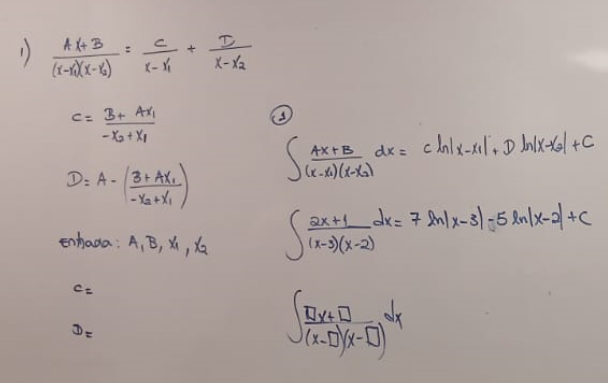 1) (Ax+B)/((x-x₁)(x-x₂)) = C/(x-x₁) + D/(x-x₂)
C = (B+Ax₁)/(-x₂+x₁)
D = A - ((B+Ax₁)/(-x₂+x₁))
entrada: A, B, x₁, x₂
C=
D=
①
∫ (Ax+B)/((x-x₁)(x-x₂)) dx = C ln|x-x₁| + D ln|x-x₂| + C
∫ (2x+1)/((x-3)(x-2)) dx = 7 ln|x-3| - 5 ln|x-2| + C
∫ (□x+□)/((x-□)(x-□)) dx